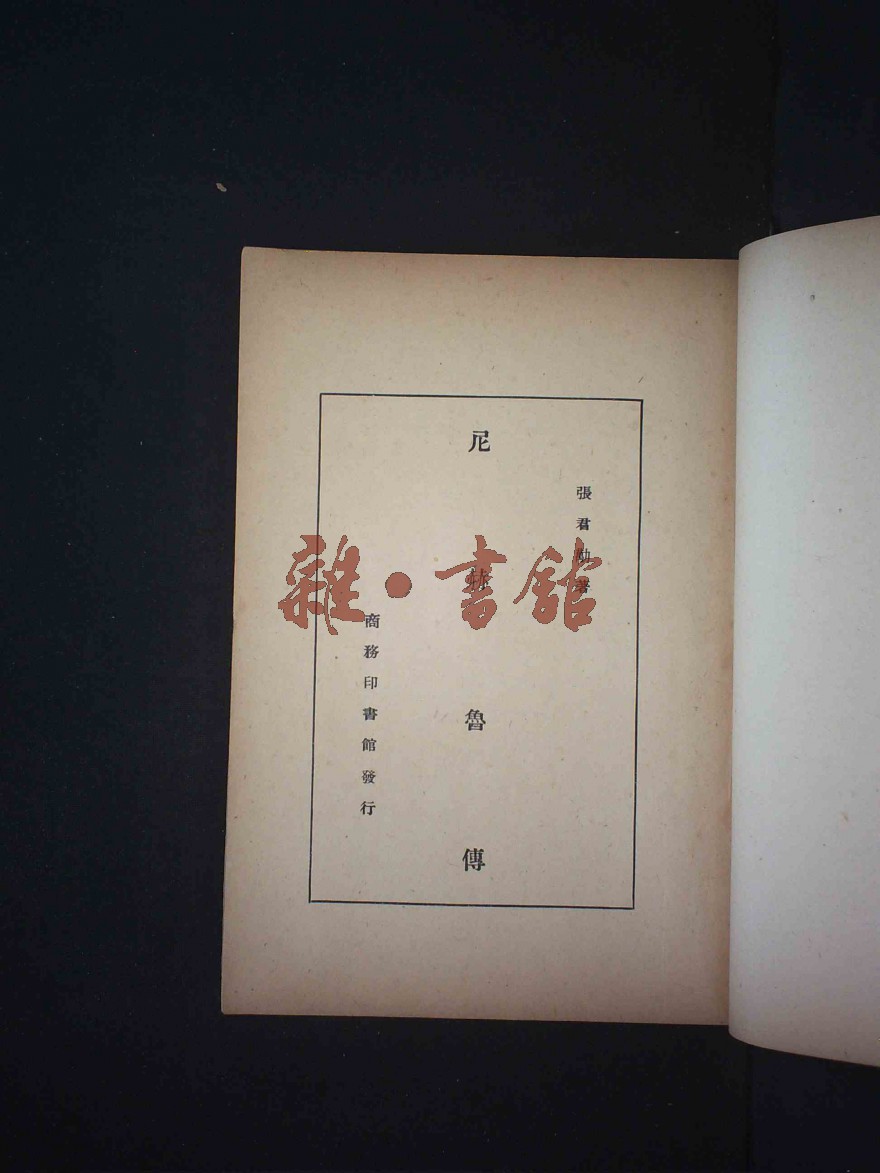 張君勱著
尼赫魯傳
商務印書館發行
雜·書館